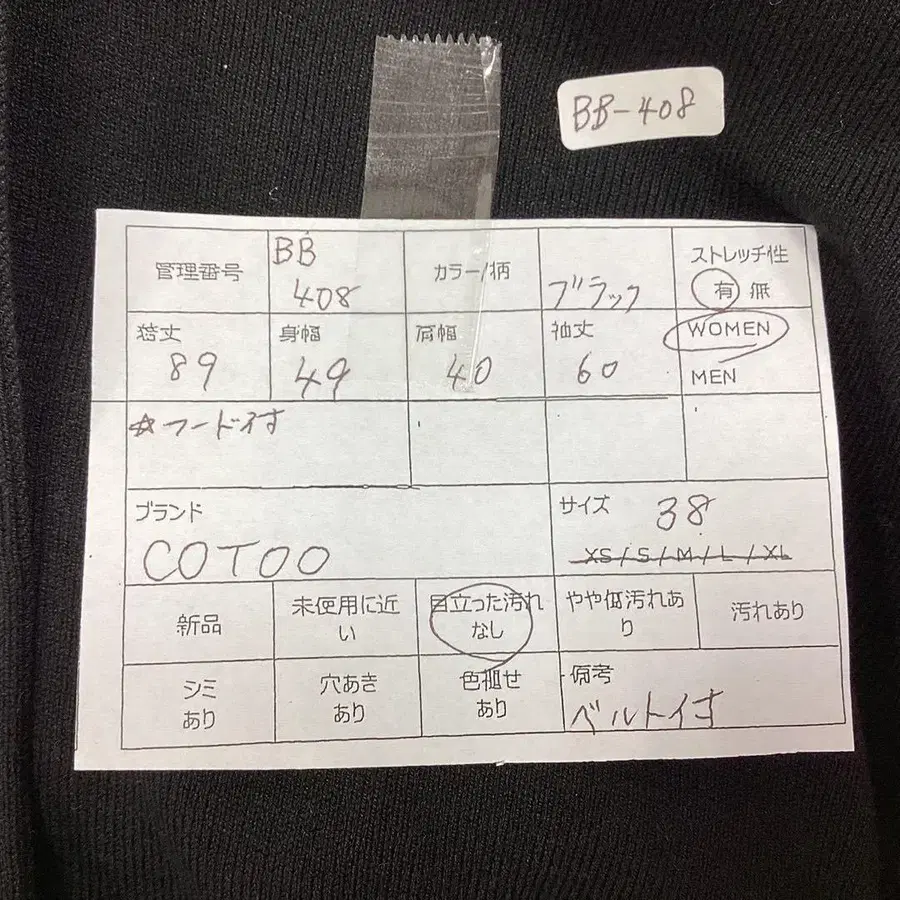 BB-408
管理番号
BB
408
カラー/柄
ブラック
ストレッチ性
有 無
着丈
89
身幅
49
肩幅
40
袖丈
60
WOMEN
MEN
☆フード付
ブランド
COTOO
サイズ
38
XS/S/M/L/XL
新品
未使用に近
い
目立った汚れ
なし
やや低汚れあ
り
汚れあり
シミ
あり
穴あき
あり
色褪せ
あり
備考
ベルト付